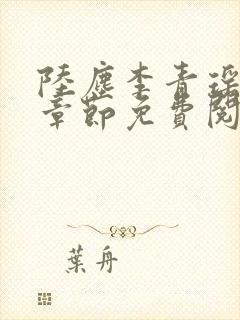 陸塵李青瑤
章節免費閱
葉舟